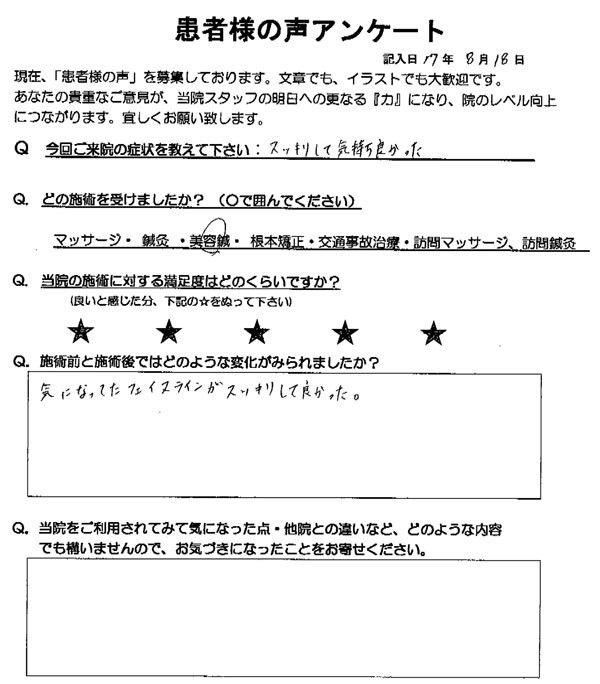 患者様の声アンケート
記入日 17年 8月18日
現在、「患者様の声」を募集しております。文章でも、イラストでも大歓迎です。
あなたの貴重なご意見が、当院スタッフの明日への更なる『力』になり、院のレベル向上
につながります。宜しくお願い致します。
Q 今回ご来院の症状を教えて下さい：スッキリして気持ち良かった
Q. どの施術を受けましたか？（〇で囲んでください）
マッサージ・ 鍼灸 ・美容鍼・ 根本矯正・交通事故治療・訪問マッサージ、訪問鍼灸
Q. 当院の施術に対する満足度はどのくらいですか？
（良いと感じた分、下記の☆をぬって下さい）
★ ★ ★ ★ ★
Q. 施術前と施術後ではどのような変化がみられましたか？
気になってたフェイスラインがスッキリして良かった。
Q. 当院をご利用されてみて気になった点・他院との違いなど、どのような内容
でも構いませんので、お気づきになったことをお寄せください。